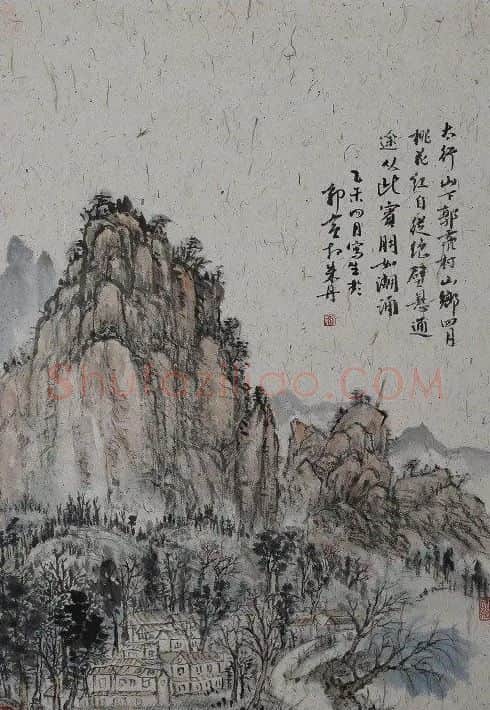 太行山下郭亮村山鄉四月
桃花红自從绝壁悬通
途从此賓朋如潮涌
乙未四月寫生於
郭亮村
Shufaziliao.COM